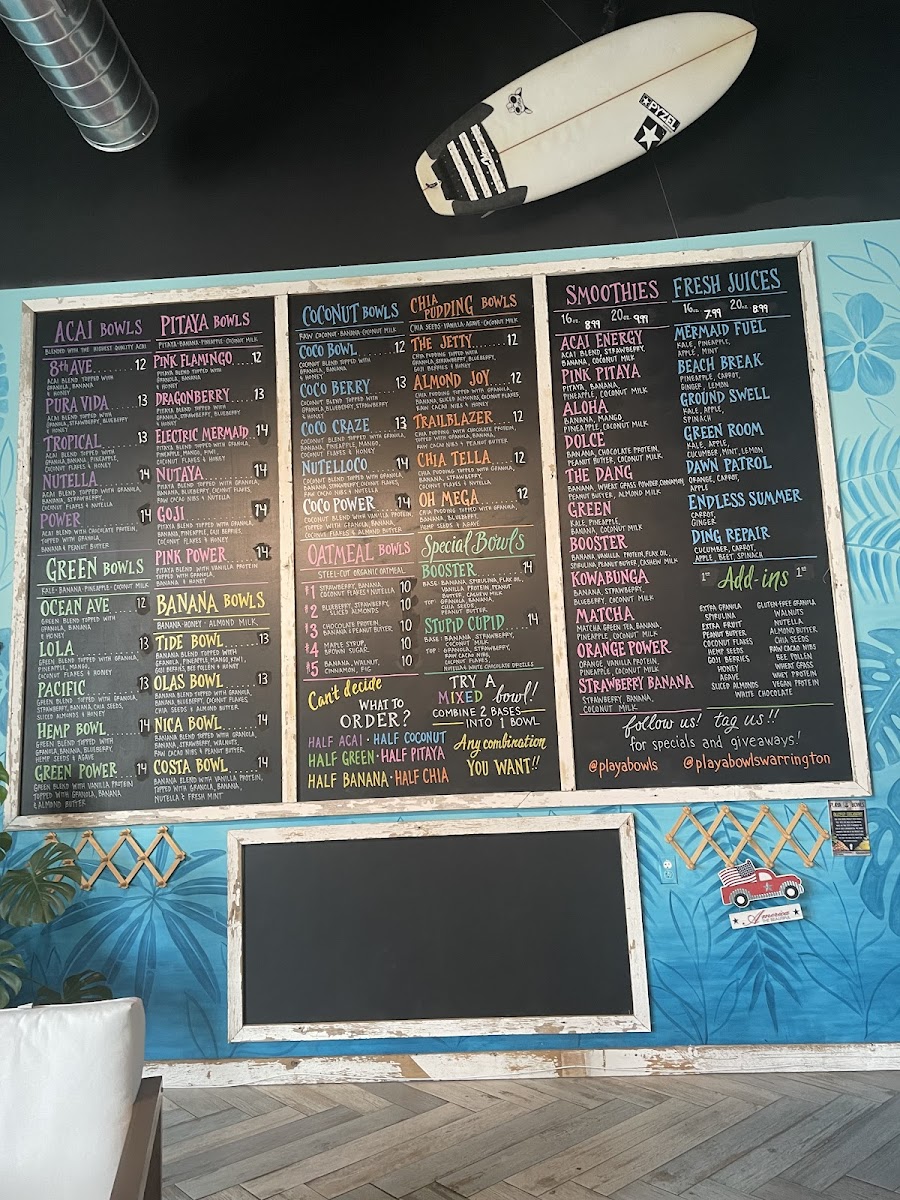 PYZEL
ACAI BOWLS
BLENDED WITH THE HIGHEST QUALITY ACAI
8th AVE 12
ACAI BLEND TOPPED WITH
GRANOLA, BANANA
& HONEY
PURA VIDA 13
ACAI BLEND TOPPED WITH
GRANOLA, STRAWBERRY, BLUEBERRY
& HONEY
TROPICAL 13
ACAI BLEND TOPPED WITH
GRANOLA, BANANA, PINEAPPLE,
COCONUT FLAKES & HONEY
NUTELLA 14
ACAI BLEND TOPPED WITH GRANOLA,
BANANA, STRAWBERRY,
COCONUT FLAKES & NUTELLA
POWER 14
ACAI BLEND WITH CHOCOLATE PROTEIN,
TOPPED WITH GRANOLA,
BANANA & PEANUT BUTTER
GREEN BOWLS
KALE-BANANA-PINEAPPLE-COCONUT MILK
OCEAN AVE 12
GREEN BLEND TOPPED WITH
GRANOLA, BANANA,
& HONEY
LOLA 13
GREEN BLEND TOPPED WITH GRANOLA,
PINEAPPLE, MANGO,
COCONUT FLAKES & HONEY
PACIFIC 13
GREEN BLEND TOPPED WITH GRANOLA,
STRAWBERRY, BANANA, CHIA SEEDS,
SLICED ALMONDS & HONEY
HEMP BOWL 14
GREEN BLEND TOPPED WITH
GRANOLA, BANANA, BLUEBERRY,
HEMP SEEDS & AGAVE
GREEN POWER 14
GREEN BLEND WITH VANILLA PROTEIN
TOPPED WITH GRANOLA, BANANA
& ALMOND BUTTER
PITAYA BOWLS
PITAYA-BANANA-PINEAPPLE-COCONUT MILK
PINK FLAMINGO 12
PITAYA BLEND TOPPED WITH
GRANOLA, BANANA
& HONEY
DRAGONBERRY 13
PITAYA BLEND TOPPED WITH
GRANOLA, STRAWBERRY, BLUEBERRY
& HONEY
ELECTRIC MERMAID 14
PITAYA BLEND TOPPED WITH GRANOLA,
PINEAPPLE, MANGO, KIWI,
COCONUT FLAKES & HONEY
NUTAYA 14
PITAYA BLEND TOPPED WITH GRANOLA,
BANANA, BLUEBERRY, COCONUT FLAKES,
RAW CACAO NIBS & NUTELLA
GOJI 14
PITAYA BLEND TOPPED WITH GRANOLA,
BANANA, PINEAPPLE, GOJI BERRIES,
COCONUT FLAKES & HONEY
PINK POWER 14
PITAYA BLEND WITH VANILLA PROTEIN
TOPPED WITH GRANOLA,
BANANA & HONEY
BANANA BOWLS
BANANA-HONEY-ALMOND MILK
TIDE BOWL 13
BANANA BLEND TOPPED WITH
GRANOLA, PINEAPPLE, MANGO, KIWI,
GOJI BERRIES, BEE POLLEN & HONEY
OLAS BOWL 13
BANANA BLEND TOPPED WITH GRANOLA,
BANANA, BLUEBERRY, COCONUT FLAKES,
CHIA SEEDS & ALMOND BUTTER
NICA BOWL 14
BANANA BLEND TOPPED WITH GRANOLA,
BANANA, STRAWBERRY, WALNUTS,
RAW CACAO NIBS & PEANUT BUTTER
COSTA BOWL 14
BANANA BLEND WITH VANILLA PROTEIN,
TOPPED WITH GRANOLA, BANANA,
NUTELLA & FRESH MINT
COCONUT BOWLS
RAW COCONUT-BANANA-COCONUT MILK
COCO BOWL 12
COCONUT BLEND TOPPED WITH
GRANOLA, BANANA,
& HONEY
COCO BERRY 13
COCONUT BLEND TOPPED WITH
GRANOLA, BLUEBERRY, STRAWBERRY
& HONEY
COCO CRAZE 13
COCONUT BLEND TOPPED WITH GRANOLA,
BANANA, PINEAPPLE, MANGO,
COCONUT FLAKES & HONEY
NUTELLOCO 14
COCONUT BLEND TOPPED WITH GRANOLA,
BANANA, STRAWBERRY, COCONUT FLAKES,
RAW CACAO NIBS & NUTELLA
COCO POWER 14
COCONUT BLEND WITH VANILLA PROTEIN,
TOPPED WITH GRANOLA, BANANA,
COCONUT FLAKES & ALMOND BUTTER
OATMEAL BOWLS
STEEL-CUT ORGANIC OATMEAL
#1 STRAWBERRY, BANANA,
COCONUT FLAKES & NUTELLA 10
#2 BLUEBERRY, STRAWBERRY,
SLICED ALMONDS 10
#3 CHOCOLATE PROTEIN,
BANANA & PEANUT BUTTER 10
#4 MAPLE SYRUP,
BROWN SUGAR 10
#5 BANANA, WALNUT,
CINNAMON, FIG 10
Can't decide
WHAT TO
ORDER?
HALF ACAI · HALF COCONUT
HALF GREEN · HALF PITAYA
HALF BANANA · HALF CHIA
CHIA
PUDDING BOWLS
CHIA SEEDS-VANILLA-AGAVE-COCONUT MILK
THE JETTY 12
CHIA PUDDING TOPPED WITH
GRANOLA, STRAWBERRY, BLUEBERRY,
GOJI BERRIES & HONEY
ALMOND JOY 12
CHIA PUDDING TOPPED WITH GRANOLA,
BANANA, SLICED ALMONDS, COCONUT FLAKES,
RAW CACAO NIBS & HONEY
TRAILBLAZER 12
CHIA PUDDING WITH CHOCOLATE PROTEIN,
TOPPED WITH GRANOLA, BANANA,
RAW CACAO NIBS & PEANUT BUTTER
CHIA TELLA 12
CHIA PUDDING TOPPED WITH GRANOLA,
BANANA, STRAWBERRY
COCONUT FLAKES & NUTELLA
OH MEGA 12
CHIA PUDDING TOPPED WITH GRANOLA,
BANANA, BLUEBERRY
HEMP SEEDS & AGAVE
Special Bowls
BOOSTER 14
BASE: BANANA, SPIRULINA, FLAX OIL,
VANILLA PROTEIN, PEANUT
BUTTER, CASHEW MILK
TOP: GRANOLA, BANANA,
CHIA SEEDS,
PEANUT BUTTER
STUPID CUPID 14
BASE: BANANA, STRAWBERRY,
COCONUT MILK
TOP: GRANOLA, STRAWBERRY,
RAW CACAO NIBS,
COCONUT FLAKES,
NUTELLA & WHITE CHOCOLATE DRIZZLES
TRY A
MIXED bowl!
COMBINE 2 BASES
INTO 1 BOWL
Any combination
YOU WANT!!
SMOOTHIES
16 oz. 8.99 20 oz. 9.99
ACAI ENERGY
ACAI BLEND, STRAWBERRY,
BANANA, COCONUT MILK
PINK PITAYA
PITAYA, BANANA
PINEAPPLE, COCONUT MILK
ALOHA
BANANA, MANGO
PINEAPPLE, COCONUT MILK
DOLCE
BANANA, CHOCOLATE PROTEIN,
PEANUT BUTTER, COCONUT MILK
THE DANG
BANANA, WHEAT GRASS POWDER, CINNAMON
PEANUT BUTTER, ALMOND MILK
GREEN
KALE, PINEAPPLE,
BANANA, COCONUT MILK
BOOSTER
BANANA, VANILLA PROTEIN, FLAX OIL,
SPIRULINA, PEANUT BUTTER, CASHEW MILK
KOWABUNGA
BANANA, STRAWBERRY,
BLUEBERRY, COCONUT MILK
MATCHA
MATCHA GREEN TEA, BANANA
PINEAPPLE, COCONUT MILK
ORANGE POWER
ORANGE, VANILLA PROTEIN,
PINEAPPLE, COCONUT MILK
STRAWBERRY BANANA
STRAWBERRY, BANANA,
COCONUT MILK
FRESH JUICES
16 oz. 7.99 20 oz. 8.99
MERMAID FUEL
KALE, PINEAPPLE,
APPLE, MINT
BEACH BREAK
PINEAPPLE, CARROT,
GINGER, LEMON
GROUND SWELL
KALE, APPLE,
SPINACH
GREEN ROOM
KALE, APPLE,
CUCUMBER, MINT, LEMON
DAWN PATROL
ORANGE, CARROT,
APPLE
ENDLESS SUMMER
CARROT,
GINGER
DING REPAIR
CUCUMBER, CARROT,
APPLE, BEET, SPINACH
Add-ins
EXTRA GRANOLA
SPIRULINA
EXTRA FRUITS
PEANUT BUTTER
COCONUT FLAKES
HEMP SEEDS
GOJI BERRIES
HONEY
AGAVE
SLICED ALMONDS
GLUTEN-FREE GRANOLA
WALNUTS
NUTELLA
ALMOND BUTTER
CHIA SEEDS
RAW CACAO NIBS
BEE POLLEN
WHEAT GRASS
WHEY PROTEIN
VEGAN PROTEIN
WHITE CHOCOLATE
follow us! tag us!!
for specials and giveaways!
@playabowls @playabowlswarrington
PLAYA BOWLS
America
THE BEAUTIFUL